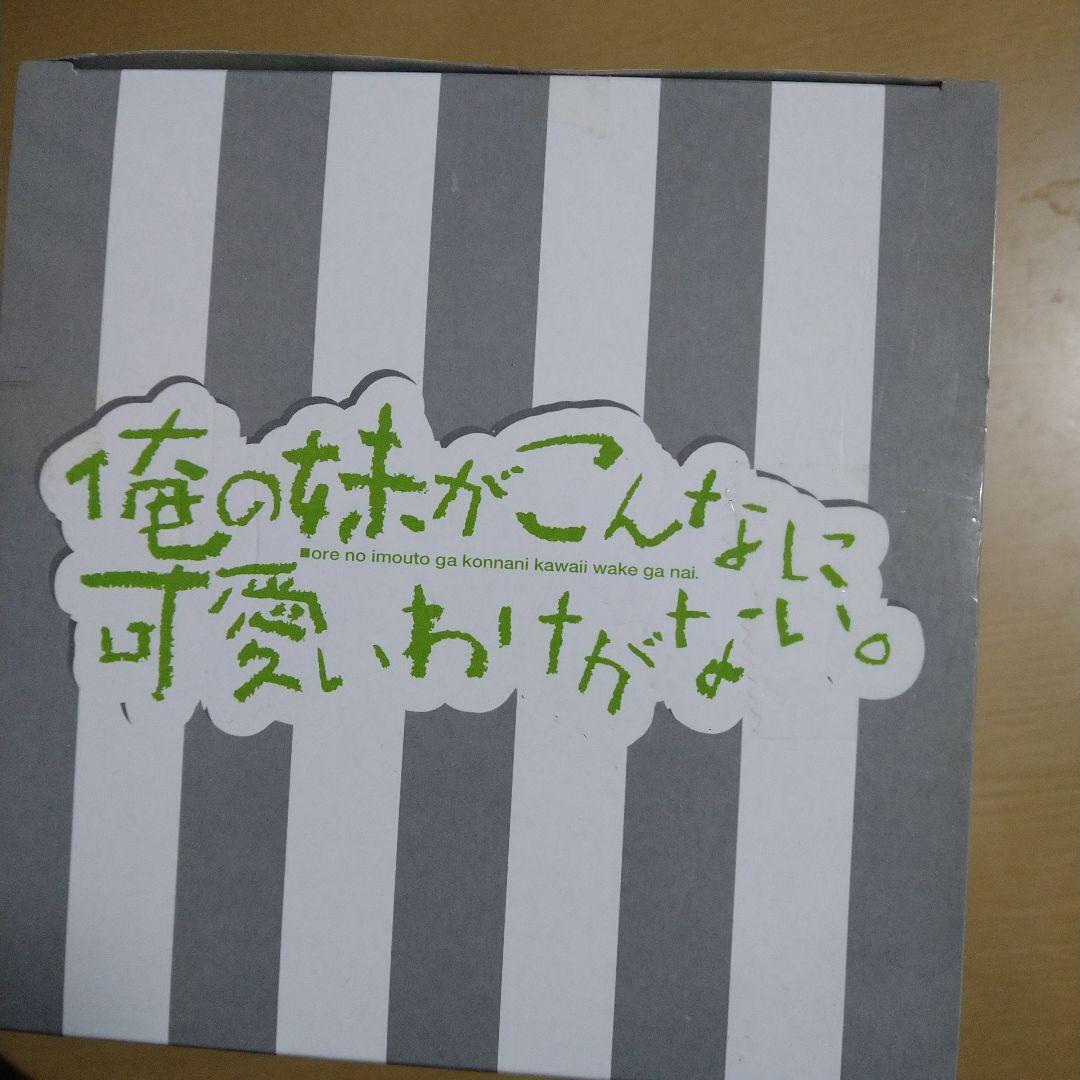 俺の妹がこんなに
■ore no imouto ga konnani kawaii wake ga nai.
可愛いわけがない。